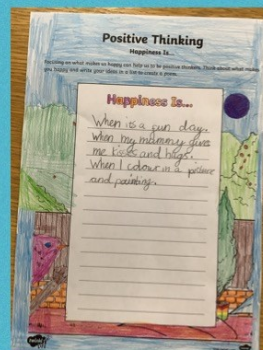 Positive Thinking
Happiness Is...
Focusing on what makes us happy can help us to be positive thinkers. Think about what makes
you happy and write your ideas in a list to create a poem.
Happiness Is...
When is a fun day.
When my mammy gives
me kisses and hugs.
When I colour in a picture
and painting.
twinkl